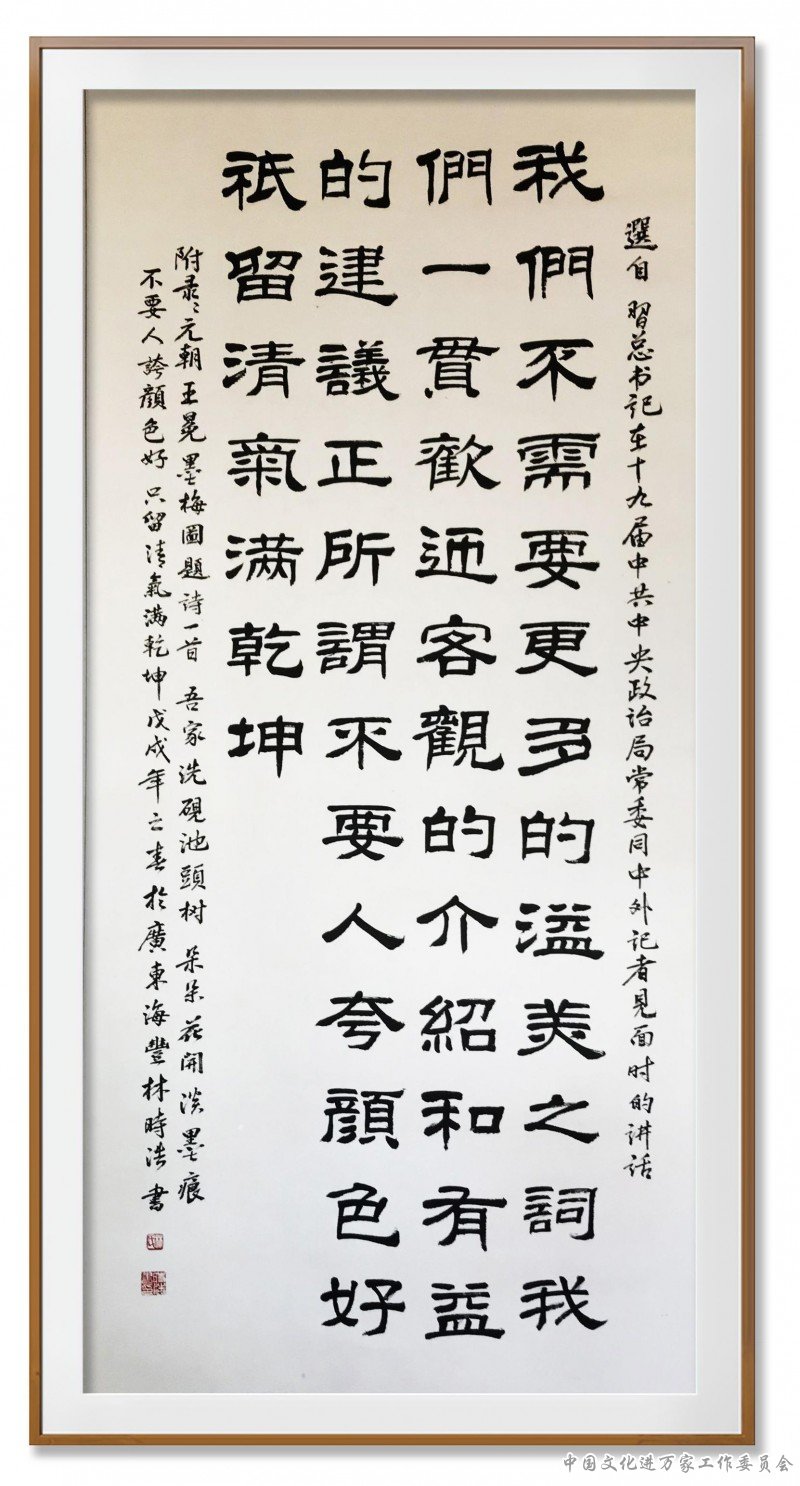 選自 習总书记在十九届中共中央政治局常委同中外记者見面时的讲话
我們不需要更多的溢美之詞我
們一貫歡迎客觀的介紹和有益
的建議正所謂不要人夸顔色好
祇留清氣满乾坤
附录：元朝王冕墨梅圖題诗一首 吾家洗硯池頭树 朵朵花開淡墨痕
不要人誇顔色好 只留清氣满乾坤 戊戌年之春於廣東海豐林時浩書
中国文化进万家工作委员会